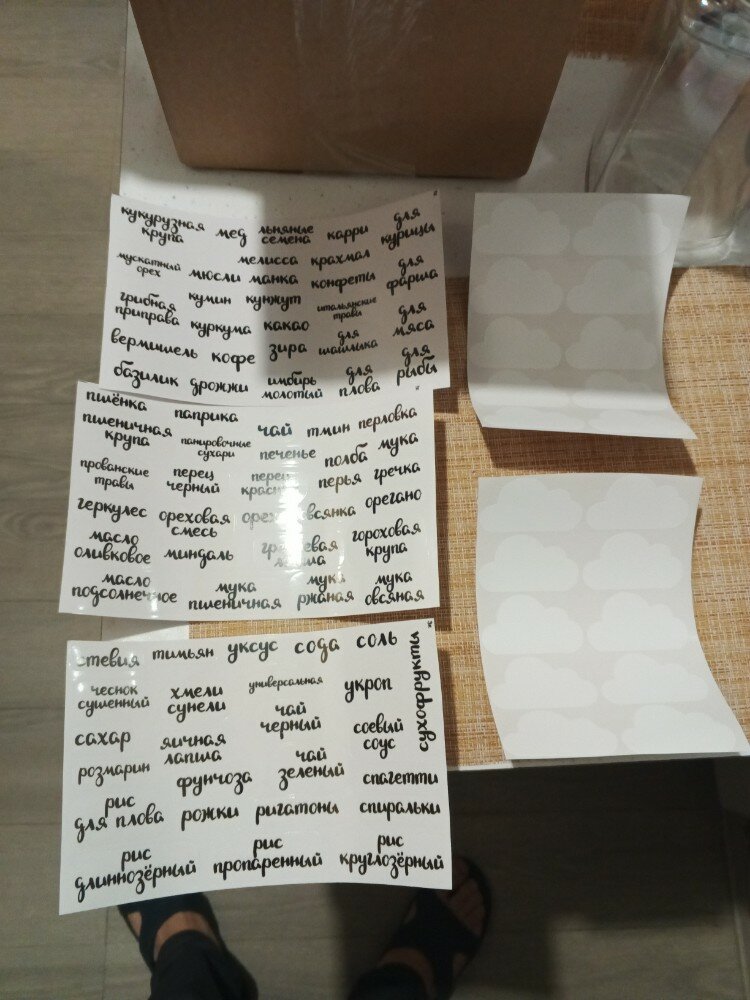 кукурузная крупа мед льняные семена карри для курицы
мускатный орех мелисса крахмал для фарша
мюсли манка конфеты
грибная приправа кумин кунжут итальянские травы для мяса
куркума какао
вермишель кофе зира для шашлыка для рыбы
базилик дрожжи имбирь молотый для плова
пшёнка паприка чай тмин перловка
пшеничная крупа панировочные сухари печенье полба мука
прованские травы перец черный перец перья гречка
геркулес ореховая смесь овсянка орегано
масло оливковое миндаль гороховая крупа
масло подсолнечное мука пшеничная мука ржаная мука овсяная
стевия тимьян уксус сода соль
сухофрукты
чеснок сушенный хмели сунели универсальная укроп
сахар яичная лапша чай черный соевый соус
розмарин фунчоза чай зеленый спагетти
рис для плова рожки ригатоны спиральки
рис длиннозёрный рис пропаренный рис круглозёрный